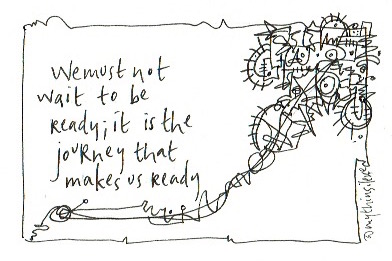 We must not
wait to be
ready; it is the
journey that
makes us ready